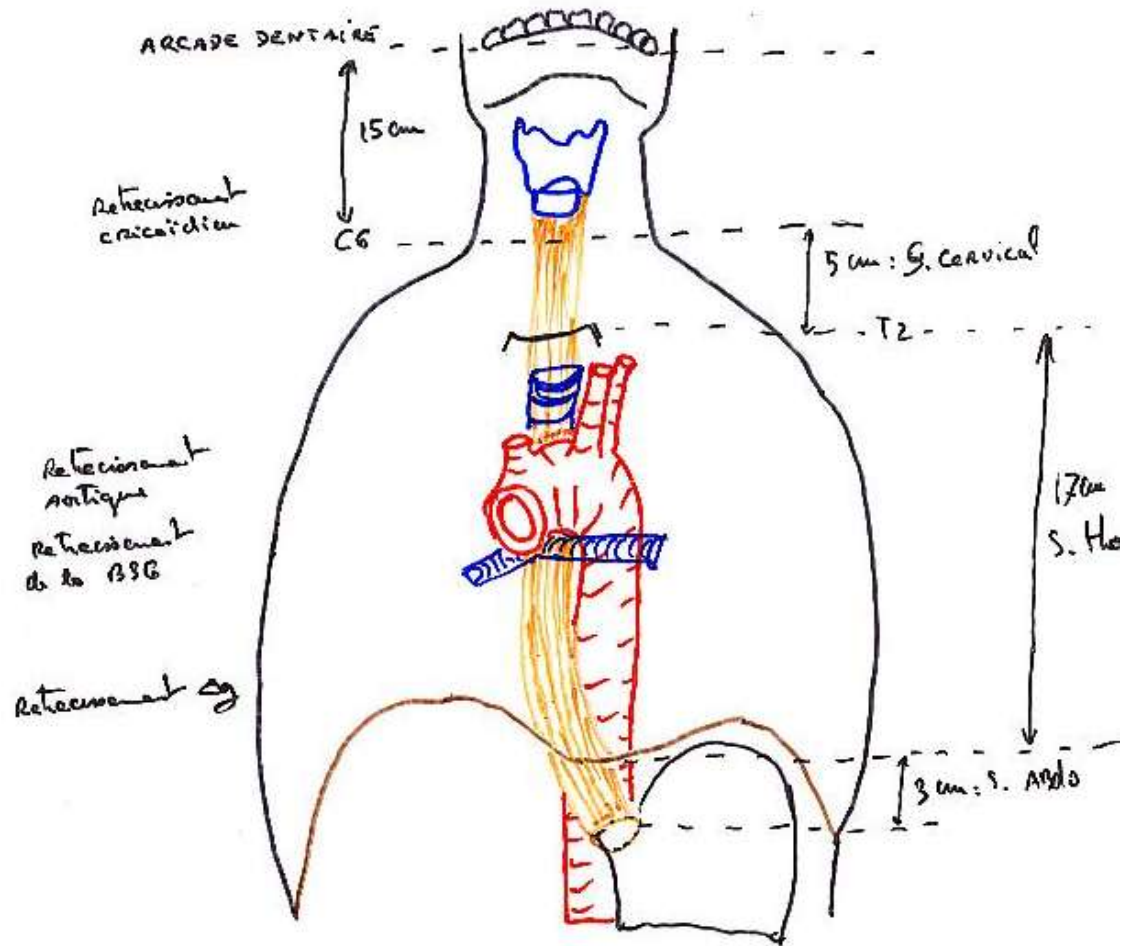 ARCADE DENTAIRE
15cm
Retrecissement
cricoïdien
C6
5 cm : S. CERVICAL
T2
Retrecissement
aortique
Retrecissement
de la BSG
17cm
S. tho
Retrecissement Dg
3 cm : S. ABdo